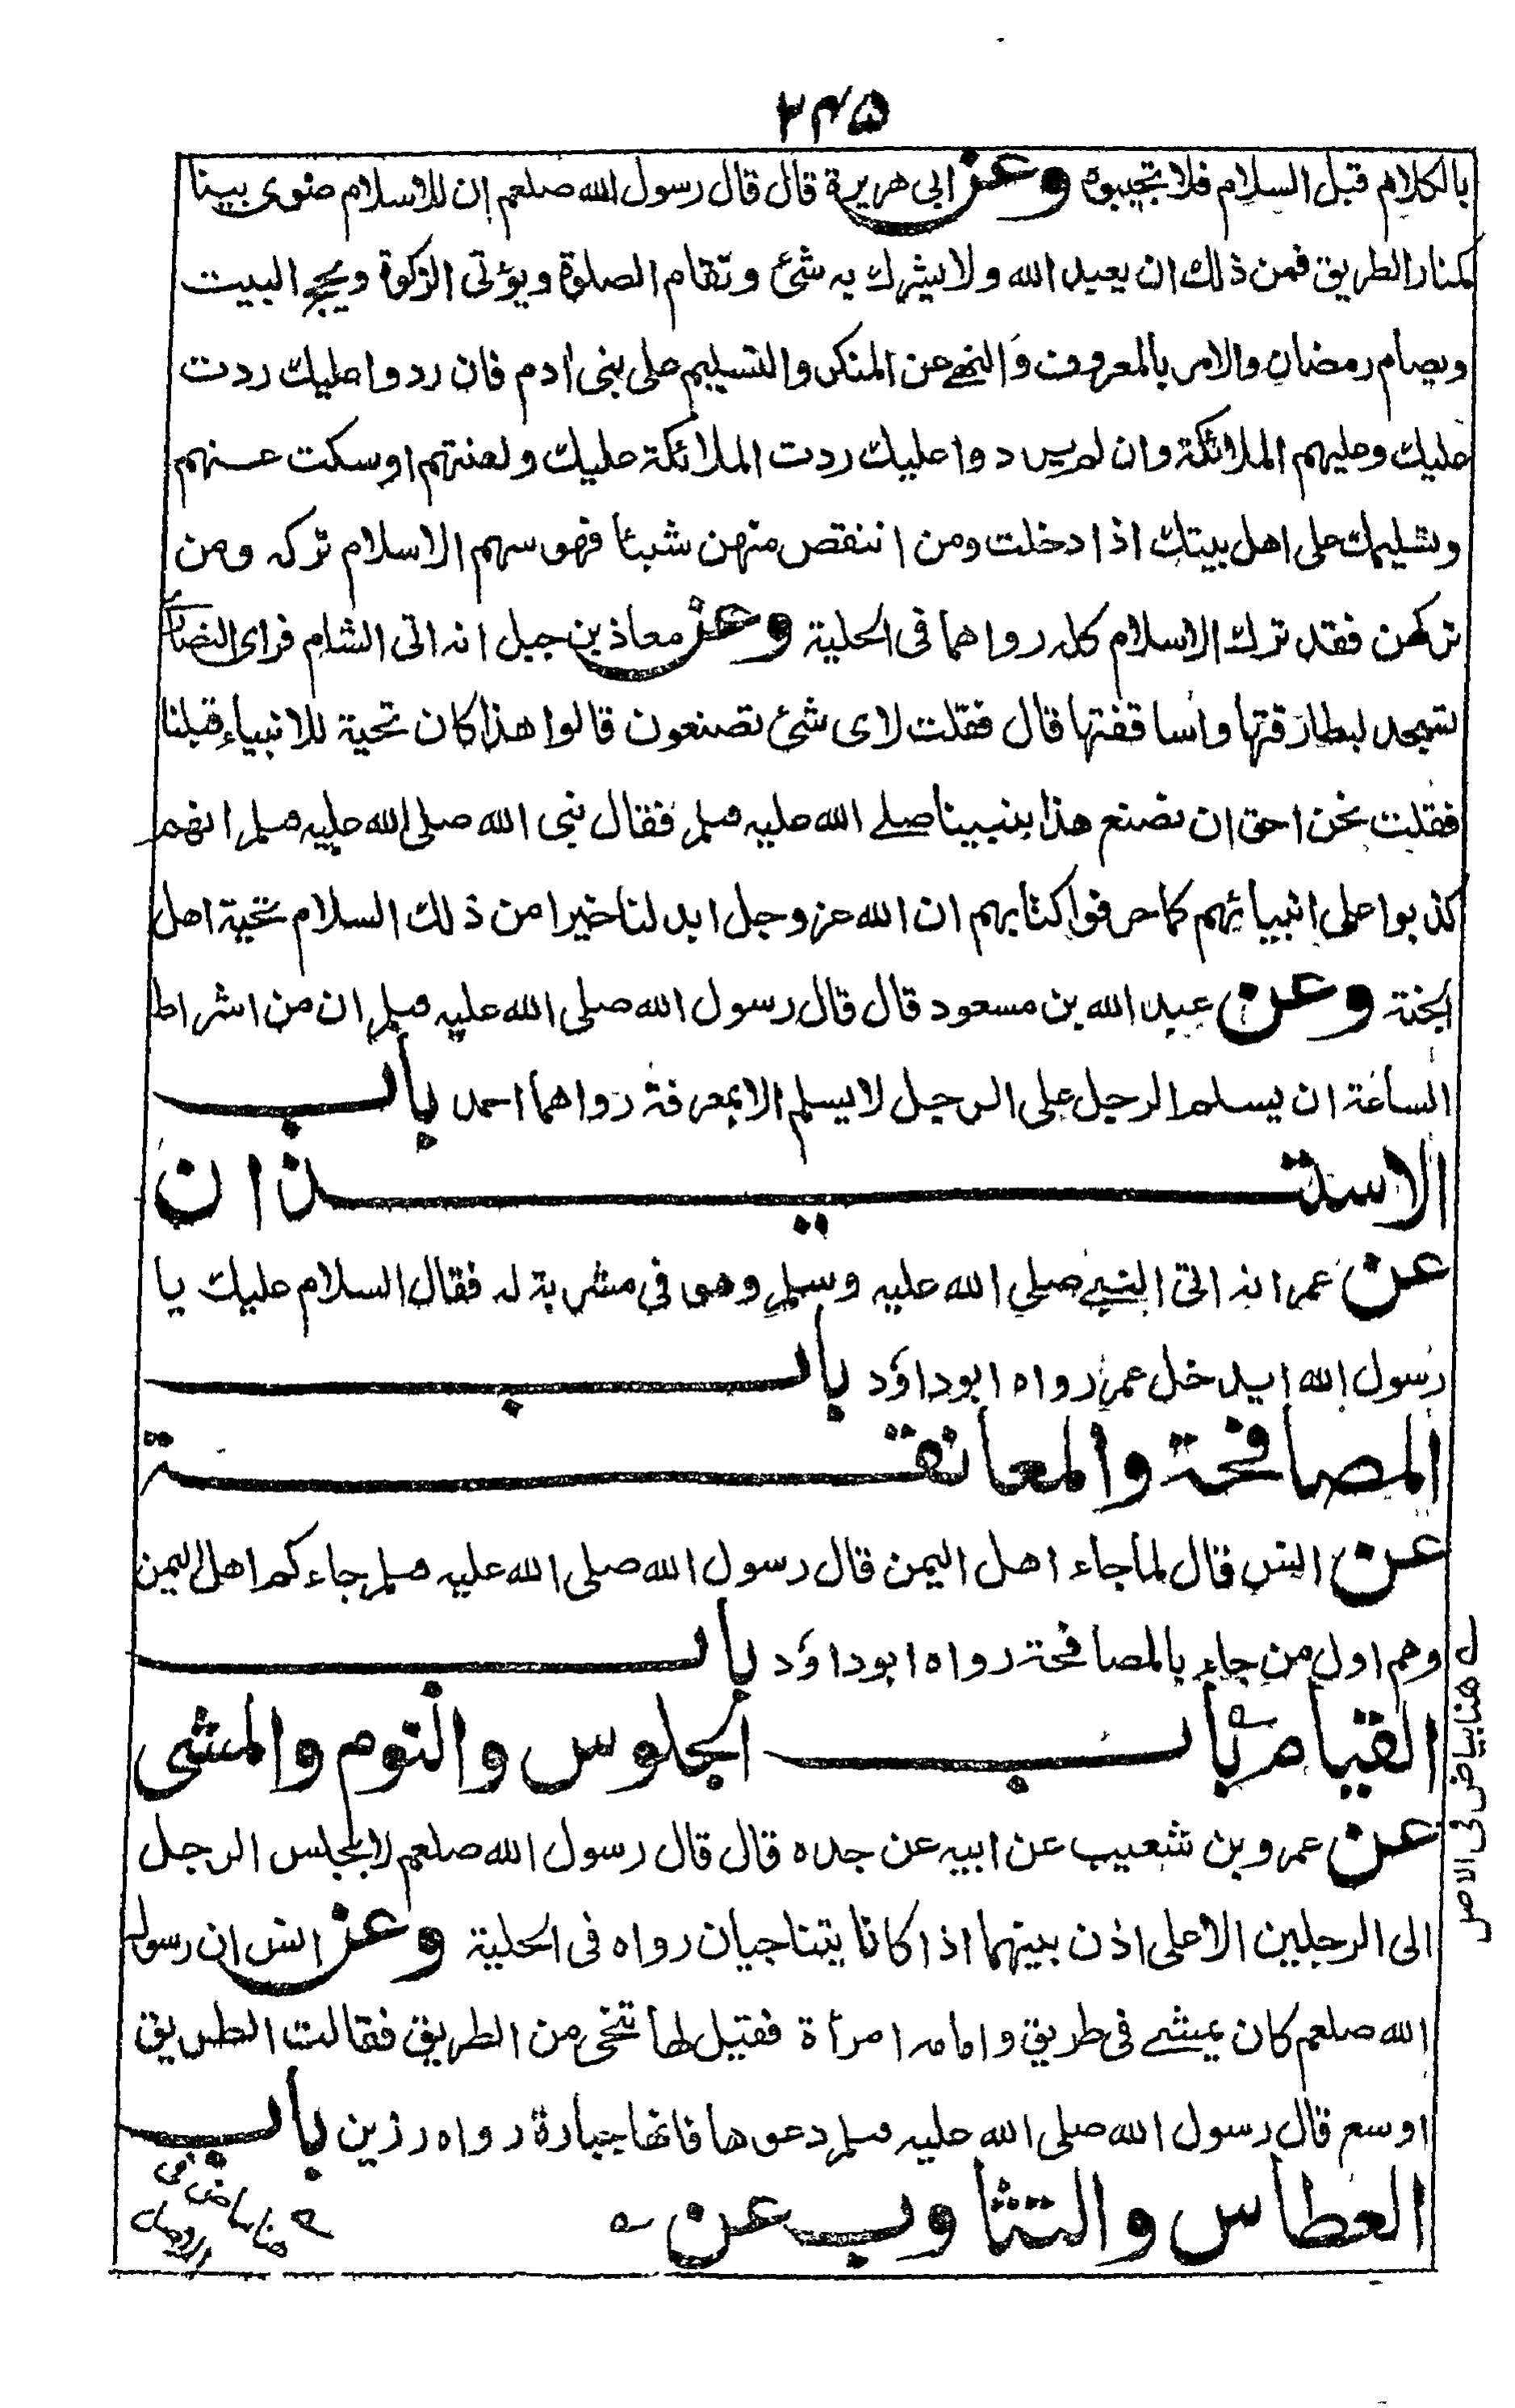 ۲۴۵
بالكلام قبل السلام فلا تجيبوه وعن ابی هريرة قال قال رسول الله صلعم ان للاسلام ضوی بينا
كمنار الطريق فمن ذلك ان يعبد الله ولا يشرك به شئ وتقام الصلوة ويؤتی الزكوة ويحج البيت
ويصام رمضان والامر بالمعروف والنهے عن المنكر والتسليم علی بنی ادم فان ردوا عليك ردت
عليك وعليهم الملائكة وان لم يردوا عليك ردت الملائكة عليك ولعنتهم اوسكت عنهم
وتسليمك علی اهل بيتك اذا دخلت ومن انتقص منهن شيئا فهو سهم الاسلام تركه ومن
تركهن فقد ترك الاسلام كله رواهما فی الحلية وعن معاذ بن جبل انه اتی الشام فرای النصاری
تسجد لبطارقتها واساقفتها قال فقلت لای شئ تصنعون قالوا هذا كان تحية للانبياء قبلنا
فقلت نحن احق ان نصنع هذا بنبينا صلے الله عليه وسلم فقال نبی الله صلی الله عليه وسلم انهم
كذبوا علی انبيائهم كما حرفوا كتابهم ان الله عز وجل ابدلنا خيرا من ذلك السلام تحية اهل
الجنة وعن عبد الله بن مسعود قال قال رسول الله صلی الله عليه وسلم ان من اشراط
الساعة ان يسلم الرجل علی الرجل لا يسلم الا بمعرفة رواهما احمد باب
الاستيذان
عن عمر انه اتی النبے صلی الله عليه وسلم وهو فی مشربة له فقال السلام عليك يا
رسول الله ايدخل عمر رواه ابوداؤد باب
المصافحة والمعانقة
عن انس قال لما جاء اهل اليمن قال رسول الله صلی الله عليه وسلم جاءكم اهل اليمن
وهم اول من جاء بالمصافحة رواه ابوداؤد باب
القيام باب الجلوس والنوم والمشی
عن عمرو بن شعيب عن ابيه عن جده قال قال رسول الله صلعم لا يجلس الرجل
الی الرجلين الا علی اذن بينهما اذا كانا يتناجيان رواه فی الحلية وعن انس ان رسول
الله صلعم كان يمشے فی طريق وامامه امرأة فقيل لها تنحی من الطريق فقالت الطريق
اوسع قال رسول الله صلی الله عليه وسلم دعوها فانها جبارة رواه رزين باب
العطاس والتثاوب عن
هنا بياض فی الاصل
هنا بياض فی الاصل